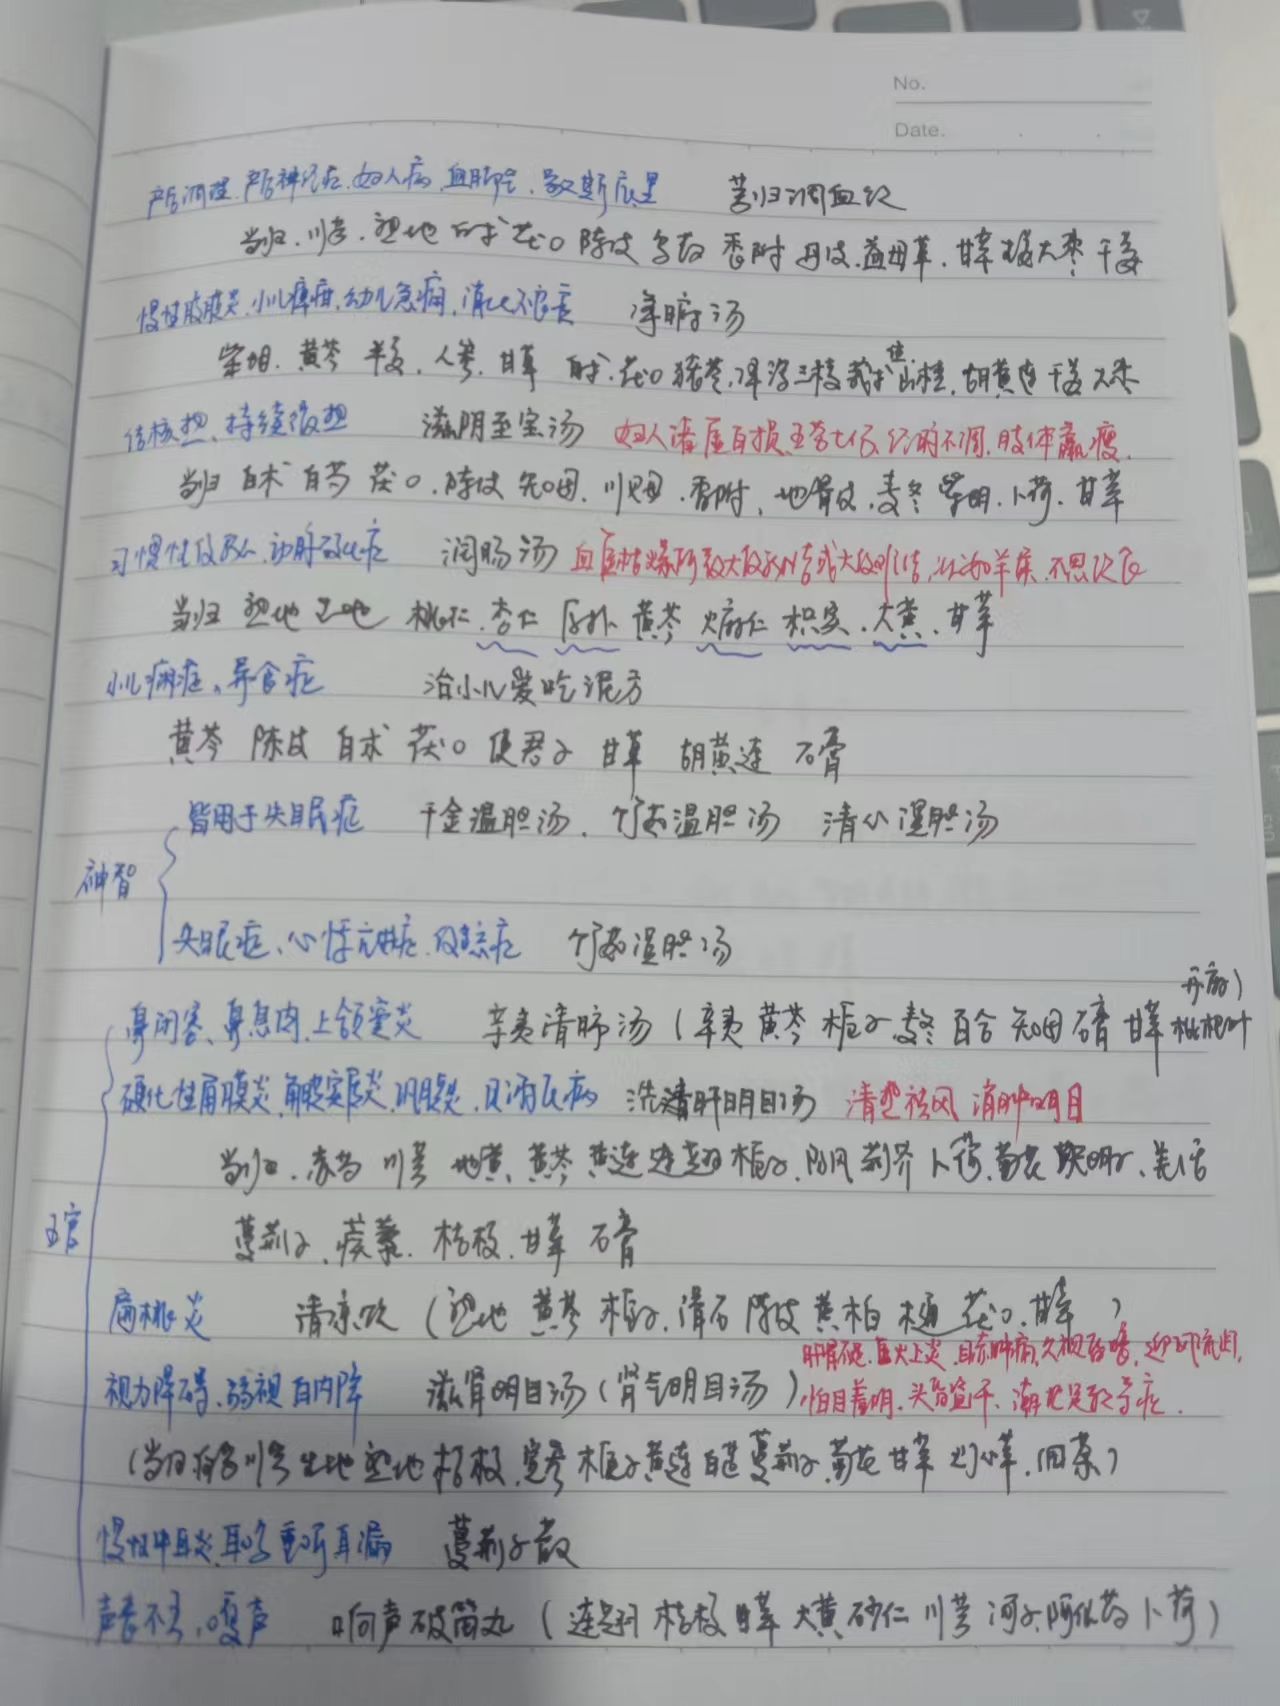 No.
Date.
产后调理.产后神经症.妇人病,血脚气,歇斯底里 芎归调血饮
当归.川芎.熟地 白术 茯〇 陈皮 乌药 香附 丹皮.益母草.甘草 大枣 干姜
慢性腹膜炎.小儿痞疳.幼儿急痫,消化不良症 净腑汤
柴胡.黄芩 半夏.人参.甘草 白术.茯〇 猪苓.泽泻 三棱 莪术 山楂.胡黄连 干姜 大枣
结核热、持续微热 滋阴至宝汤 妇人诸虚百损.五劳七伤.经脉不调.肢体羸瘦.
当归 白术 白芍 茯〇.陈皮 知母.川贝母.香附.地骨皮.麦冬 柴胡.卜荷.甘草
习惯性便秘.动脉硬化症 润肠汤 血虚枯燥所致大便秘结或大便引结,状如羊屎.不思饮食
当归 熟地 生地 桃仁.杏仁 厚朴 黄芩 火麻仁 枳实.大黄.甘草
小儿癖症、异食症 治小儿爱吃泥方
黄芩 陈皮 白术 茯〇 使君子 甘草 胡黄连 石膏
皆用于失眠症 千金温胆汤.竹茹温胆汤 清心温胆汤
神智
失眠症、心悸亢进症. 竹茹温胆汤
升麻)
鼻闭塞、鼻息肉.上颌窦炎 辛夷清肺汤(辛夷 黄芩 栀子.麦冬 百合 知母 石膏 甘草 枇杷叶
硬化性角膜炎.角膜实质炎. 洗肝明目汤 清热祛风 消肿明目
当归.赤芍 川芎 地黄.黄芩 黄连 连翘 栀子.防风 荆芥 卜荷.菊花 决明子、羌活
五官
蔓荆子.蒺藜.桔梗.甘草 石膏
扁桃炎 清凉饮(熟地 黄芩 栀子.滑石 陈皮 黄柏 木通 茯〇.甘草)
肝肾 虚火上炎.目赤肿痛.久视昏暗.迎风流泪.
视力障碍.弱视 白内障 滋肾明目汤(肾气明目汤) 怕日羞明.头
(当归 川芎 生地 熟地 桔梗. 栀子 黄连 白芷 蔓荆子.菊花 甘草 灯心草.细茶)
慢性中耳炎.耳鸣 重听 耳漏 蔓荆子散
声音不 .嗄声 响声破笛丸(连翘 桔梗 甘草 大黄 砂仁 川芎 诃子.阿仙药 卜荷)